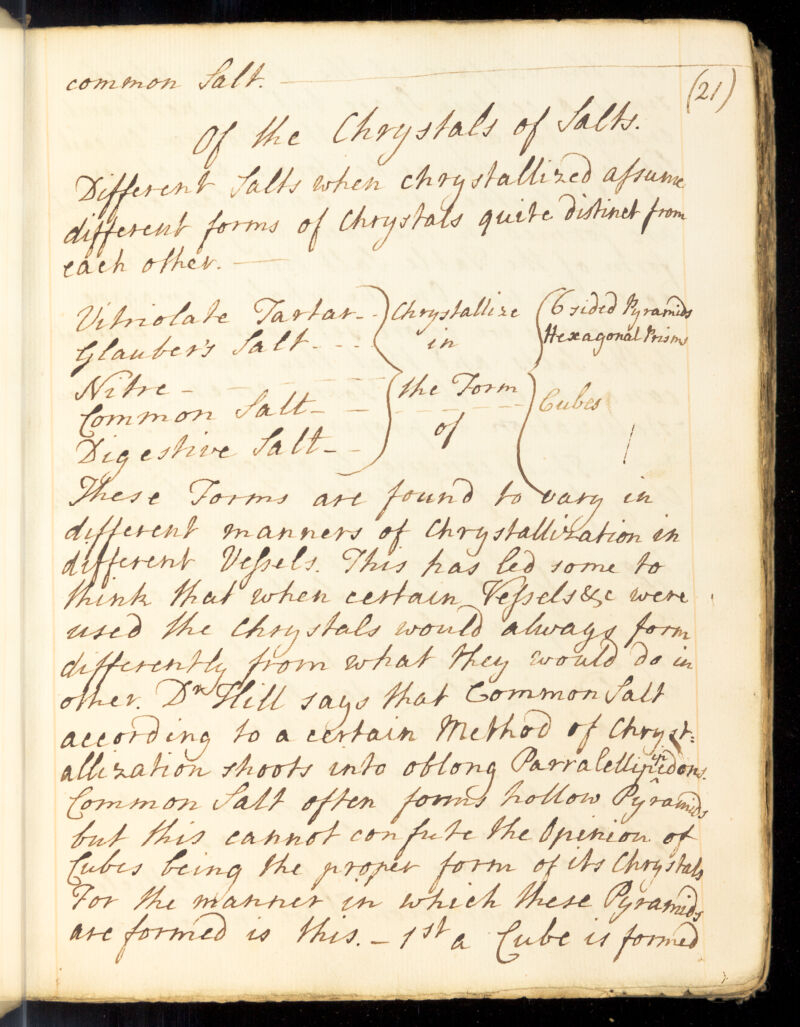 common Salt.
(21)
Of the Chrystals of Salts.
Different Salts when chrystallized assume
different forms of Chrystals quite distinct from
each other. —
Vitriolate Tartar - - Chrystallize (6 sided Pyramids
Glauber's Salt - - - in Hexagonal Prisms
Nitre - - - - the Form
Common Salt - - Cubes
Digestive Salt - - of
These Forms are found to vary in
different manners of Chrystallization in
different Vessels. This has led some to
think that when certain Vessels &c were
used the Chrystals would always form
differently from what they would do in
other. Dr Hill says that Common Salt
according to a certain Method of Chryst=
allization shoots into oblong Parralellipipedons.
Common Salt often forms hollow Pyramids
but this cannot confute the Opinion of
Cubes being the proper form of its Chrystals
For the manner in which these Pyramids
are formed is this. - 1st a Cube is formed